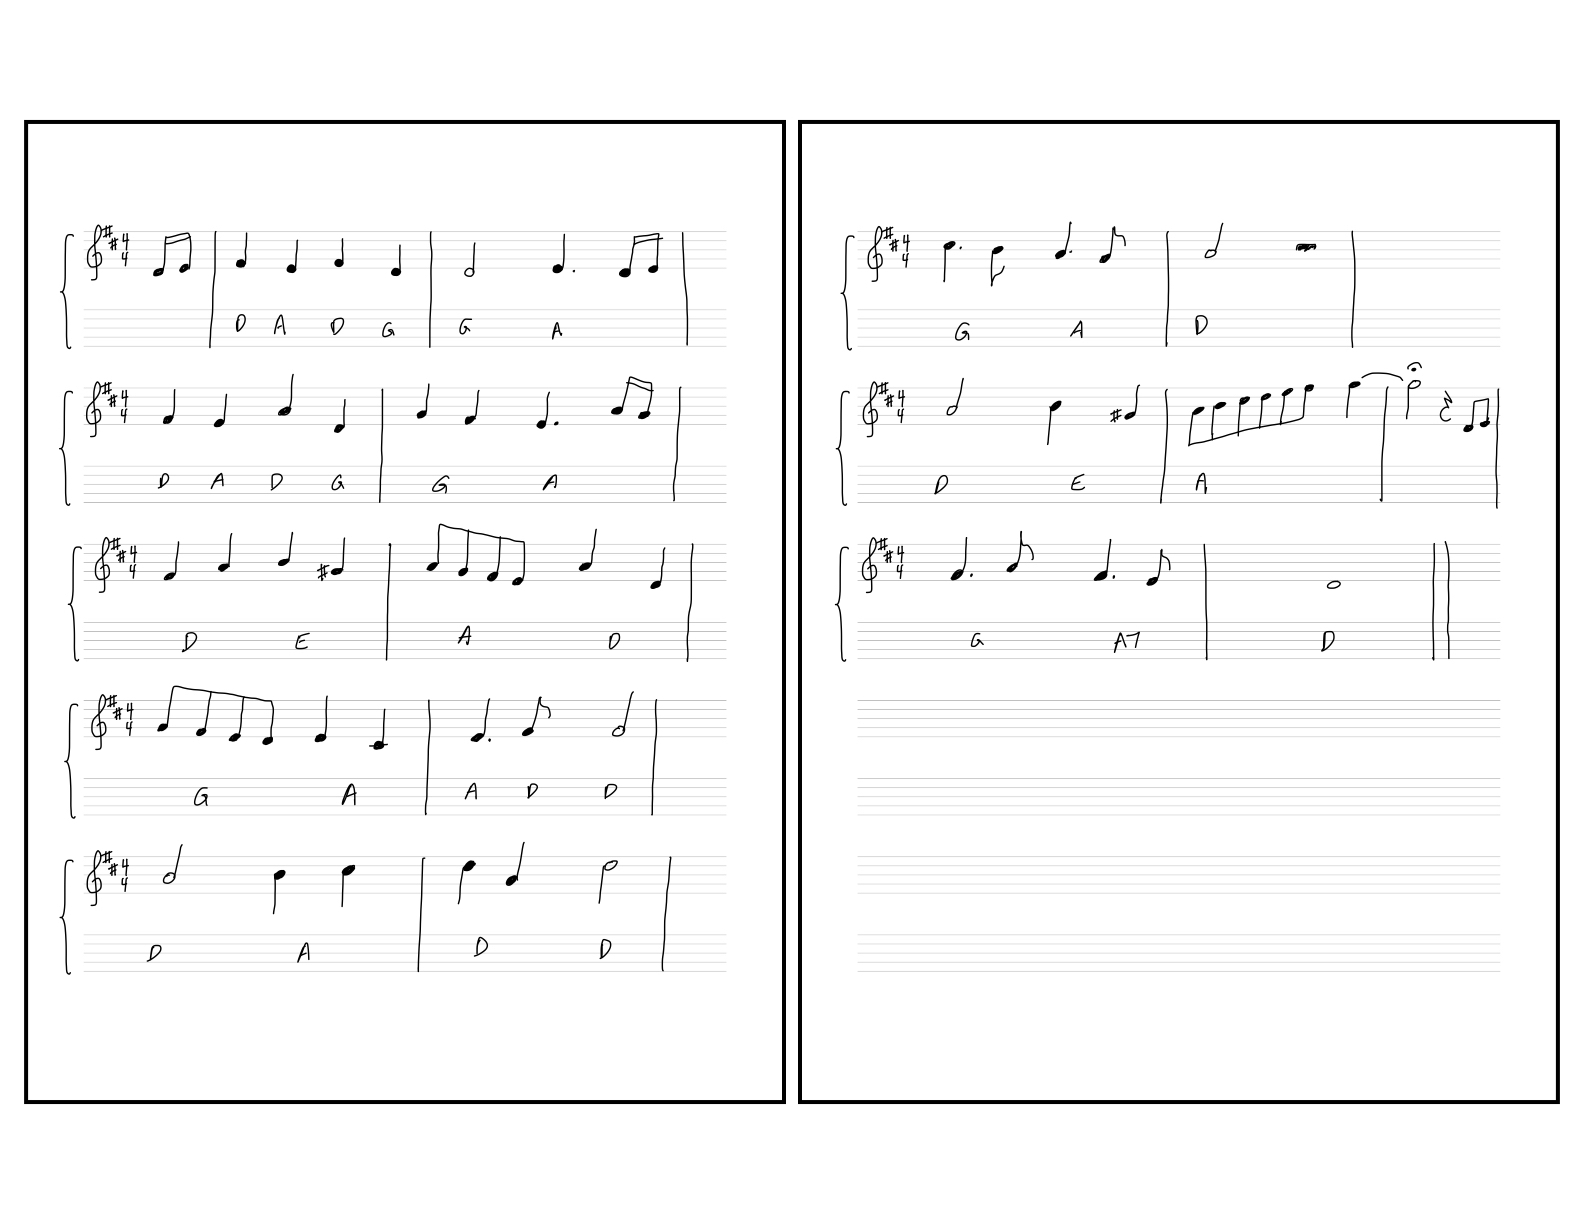 4 4
D A D G G A
4 4
D A D G G A
4 4
D E A D
4 4
G A A D D
4 4
D A D D
4 4
G A D
4 4
D E A
4 4
G A7 D